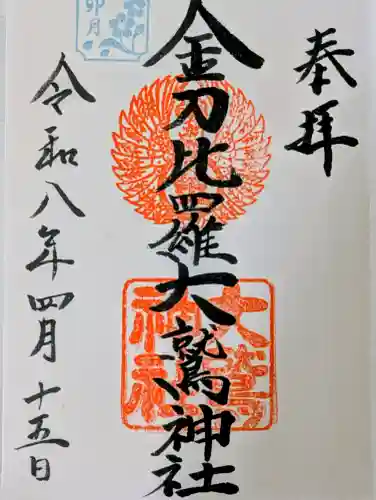 奉拝
金刀比羅大鷲神社
令和八年四月十五日
卯月
大鷲神社